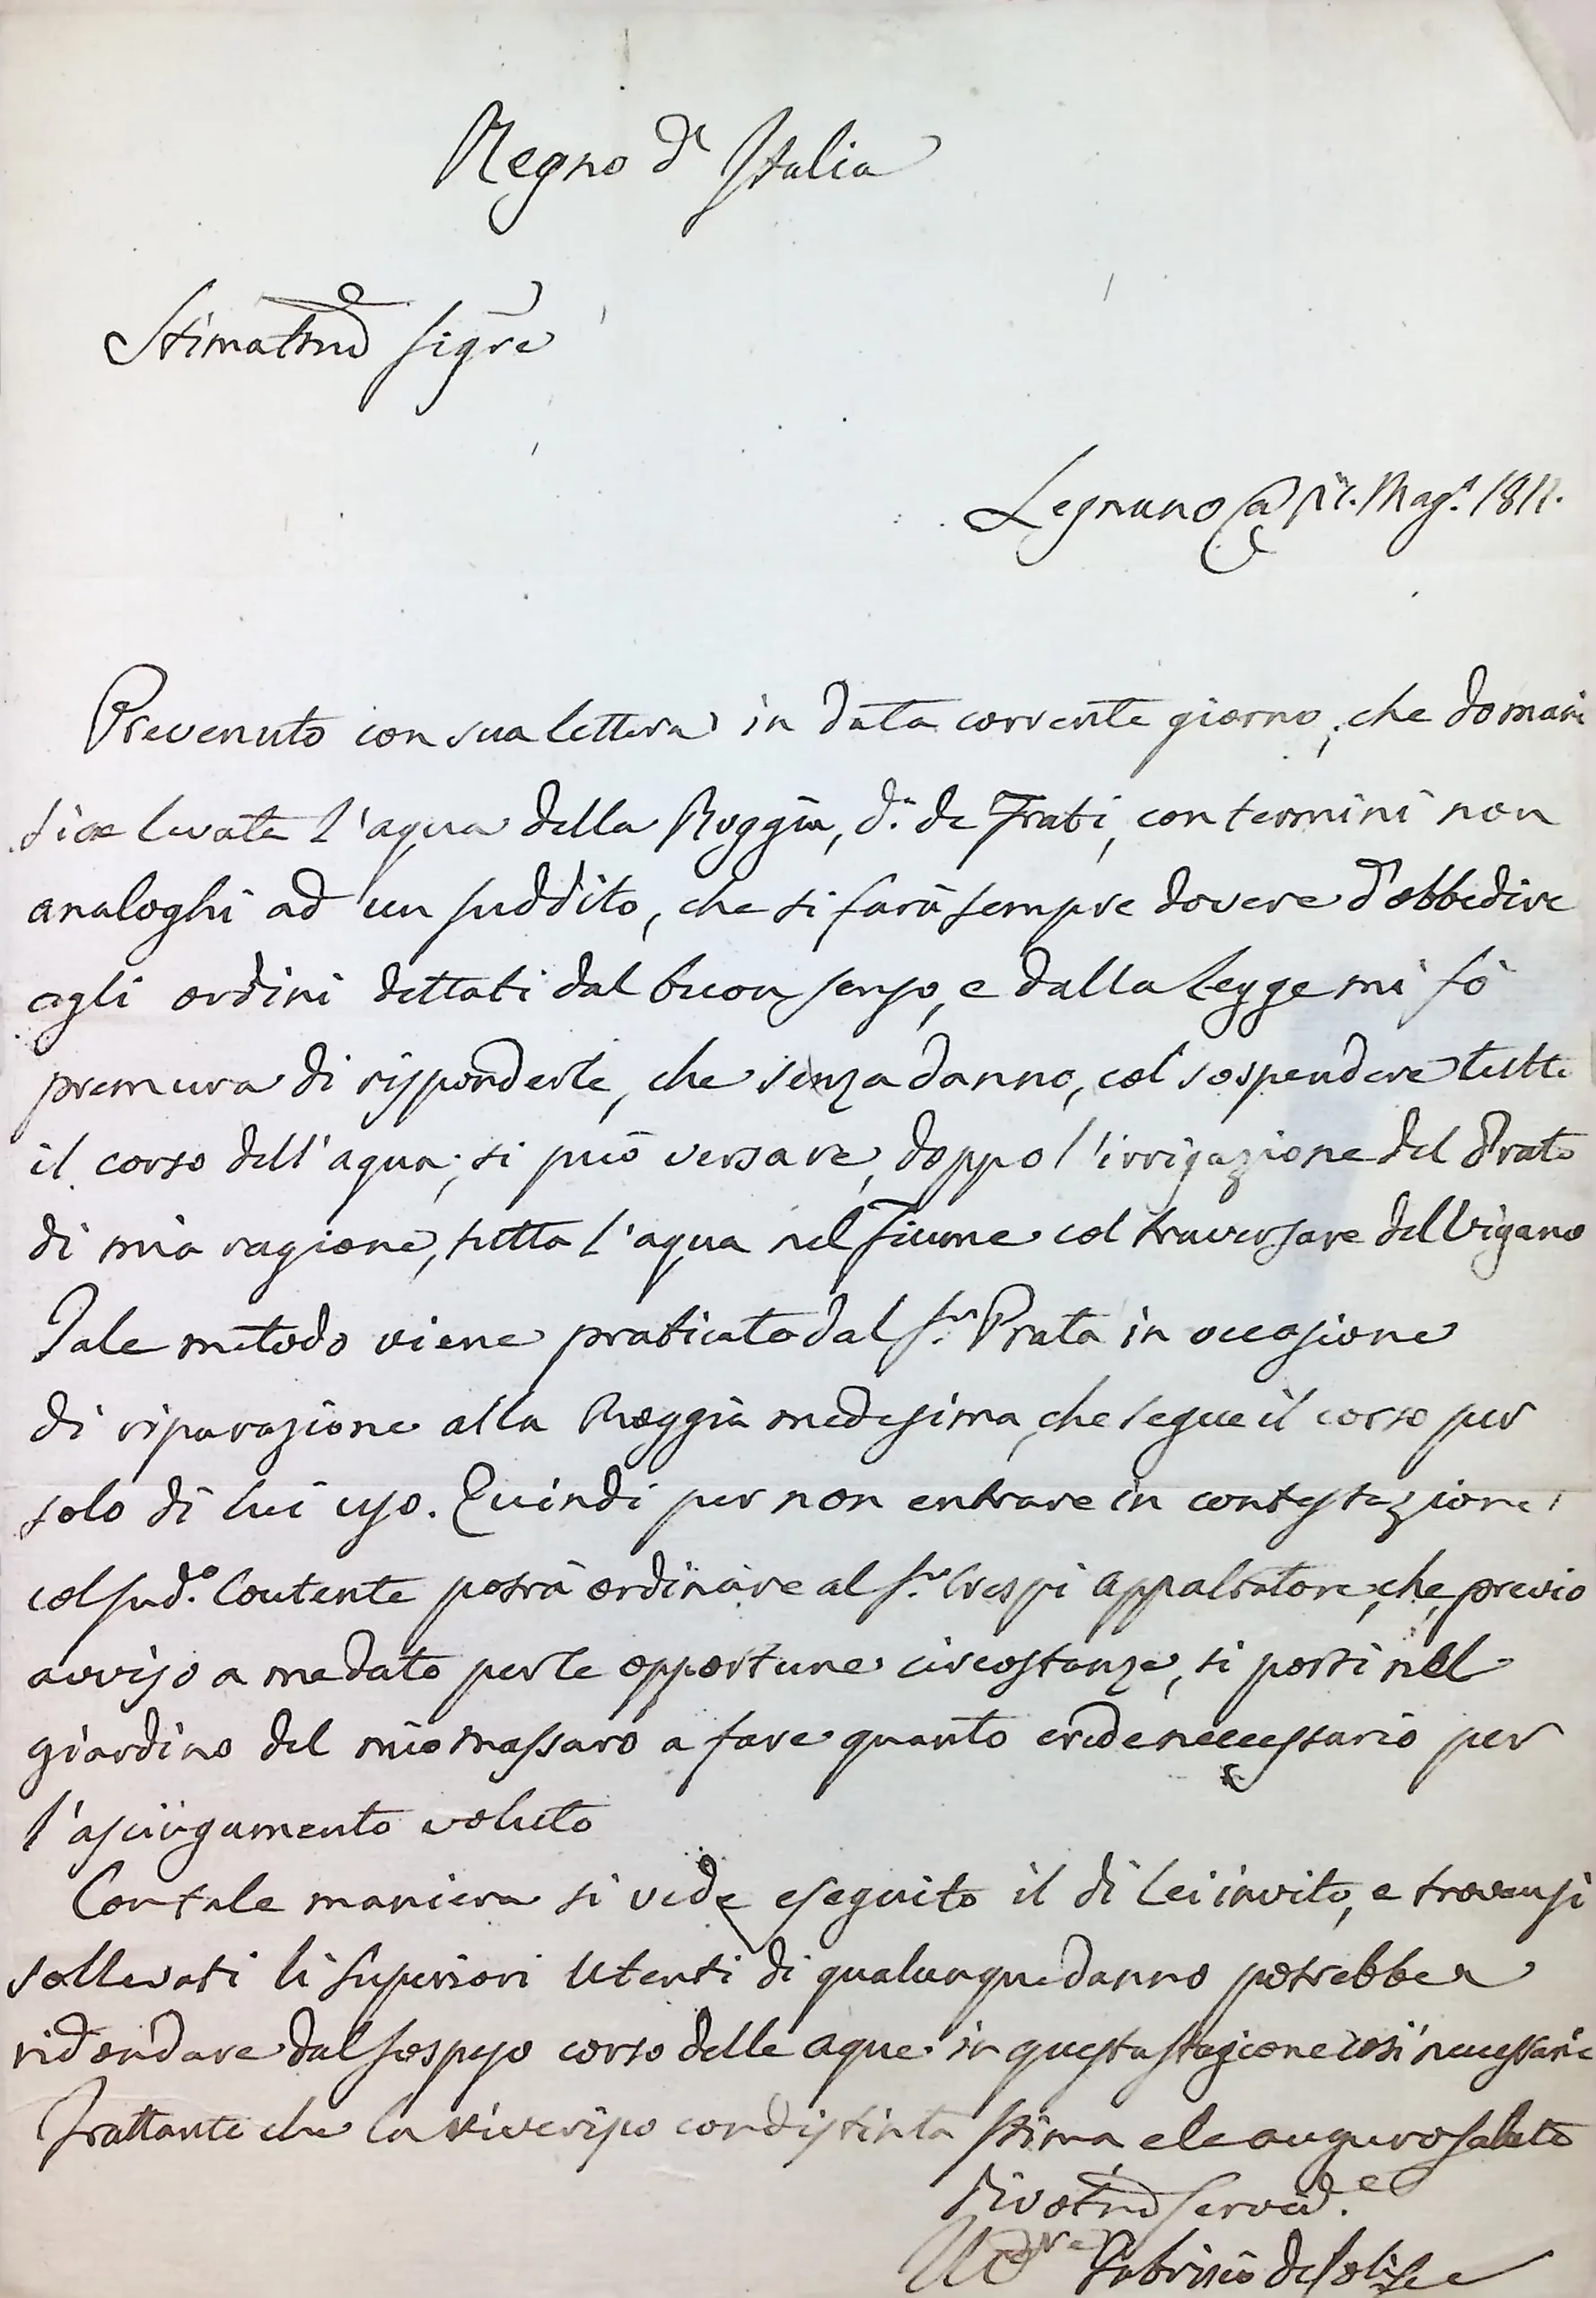 Regno d'Italia
Stimatmo Sigre
Legnano @ Mag.o 1811.
Prevenuto con sua lettera in data corrente giorno, che domani
sia levata l'aqua della Roggia, d.a de Frati, con termini non
analoghi ad un suddito, che si farà sempre dovere d'obbedire
agli ordini dettati dal buon senso, e dalla Legge mi fò
premura di risponderle, che senza danno, col sospendere tutto
il corso dell'aqua, si può versare, doppo l'irrigazione del Prato
di mia ragione, tutta l'aqua nel Fiume col traversare del Vigano
Tale metodo viene praticato dal S.r Prata in occasione
di riparazione alla Roggia medesima, che segue il corso per
solo di lui uso. Quindi per non entrare in contestazione
col sud.o Coutente potrà ordinare al S.r Crespi Appaltatore, che, previo
avviso a me dato per le opportune circostanze, si porti nel
giardino del mio massaro a fare quanto crede necessario per
l'asciugamento voluto
Con tale maniera si vede eseguito il di Lei invito, e trovansi
sollevati li Superiori Utenti di qualunque danno potrebbe a
ridondare dal sospeso corso delle aque in questa stagione così necessarie
Frattanto che la riverisco con distinta stima, e le auguro salute
Divotmo Servid.e
Fabrizio de